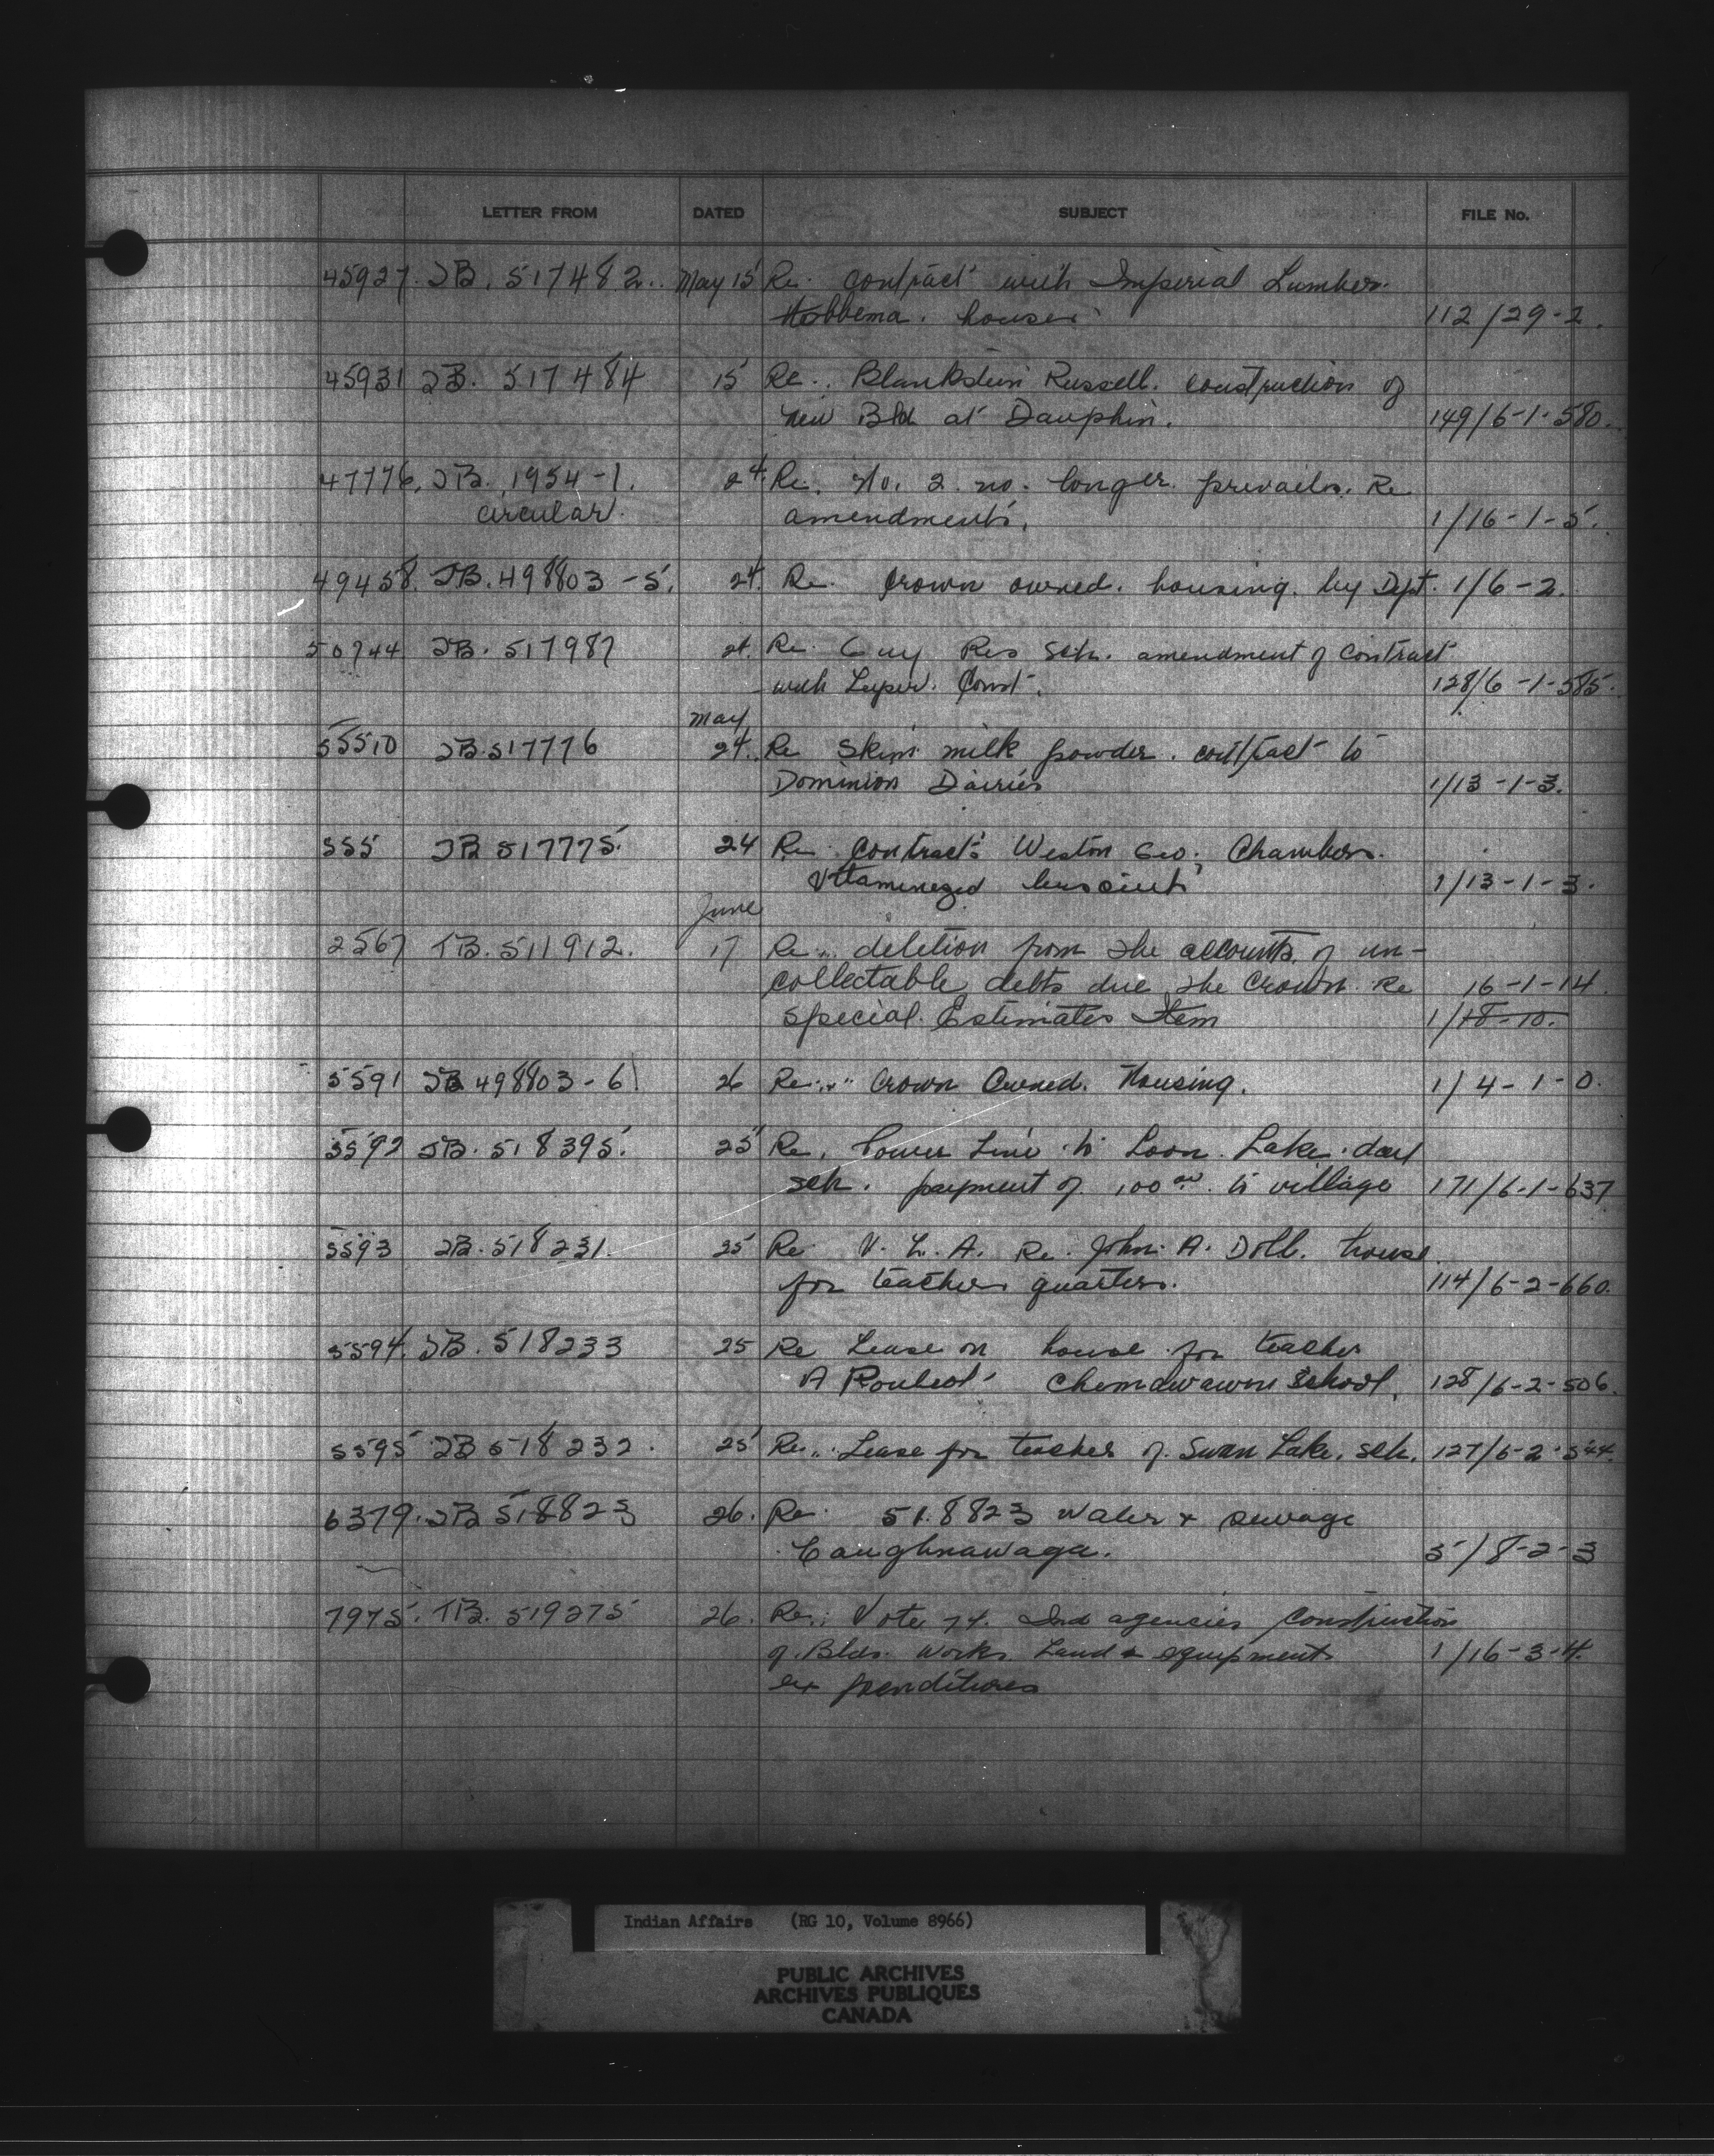 LETTER FROM DATED SUBJECT FILE No.
45927. TB. 517482. May 15 Re. contract with Imperial Lumber.
Hobbema. houses 112/29-2.
45931 TB. 517484 15 Re. Blankstein Russell. construction of
new Bld at Dauphin. 149/6-1-580.
47776. TB. 1954-1. 24. Re. No. 2 no. longer prevails. Re
circular. amendments. 1/16-1-5.
49458. TB. 498803-5. 24. Re. Crown owned. housing. by Dept. 1/6-2.
50744 TB. 517987 24. Re. Guy Res Sch. amendment of contract
with Const. 128/6-1-585.
May
55510 TB. 517776 24. Re Skim milk powder. contract to
Dominion Dairies 1/13-1-3.
555 TB 517775. 24 Re. contracts Weston Geo; Chambers.
Vitaminezed biscuits 1/13-1-3.
June
2567 TB. 511912. 17 Re. deletion from the accounts of un-
collectable debts due the Crown. Re 16-1-14.
Special. Estimates Item 1/18-10.
5591 TB 498803-6 26 Re. Crown Owned. Housing. 1/4-1-0.
5592 TB. 518395. 25 Re. Power Line to Loon Lake. day
sch. payment of 100 00. to village 171/6-1-637
5593 TB. 518231. 25 Re. V. L. A. Re. John. A. Doll. house
for teachers quarters. 114/6-2-660.
5594. TB. 518233 25 Re Lease on house for teacher
A Chemawawin School. 128/6-2-506.
5595 TB 518232. 25 Re. Lease for teacher of. Swan Lake. sch. 127/6-2-544.
6379. TB 518823 26. Re. 518823 Water & sewage
Caughnawaga. 5/8-2-3
7975. TB. 519275 26. Re. Vote 74. Ind agencies construction
of Blds. Works Land & equipment 1/16-3-4.
expenditures
Indian Affairs (RG 10, Volume 8966)
PUBLIC ARCHIVES
ARCHIVES PUBLIQUES
CANADA